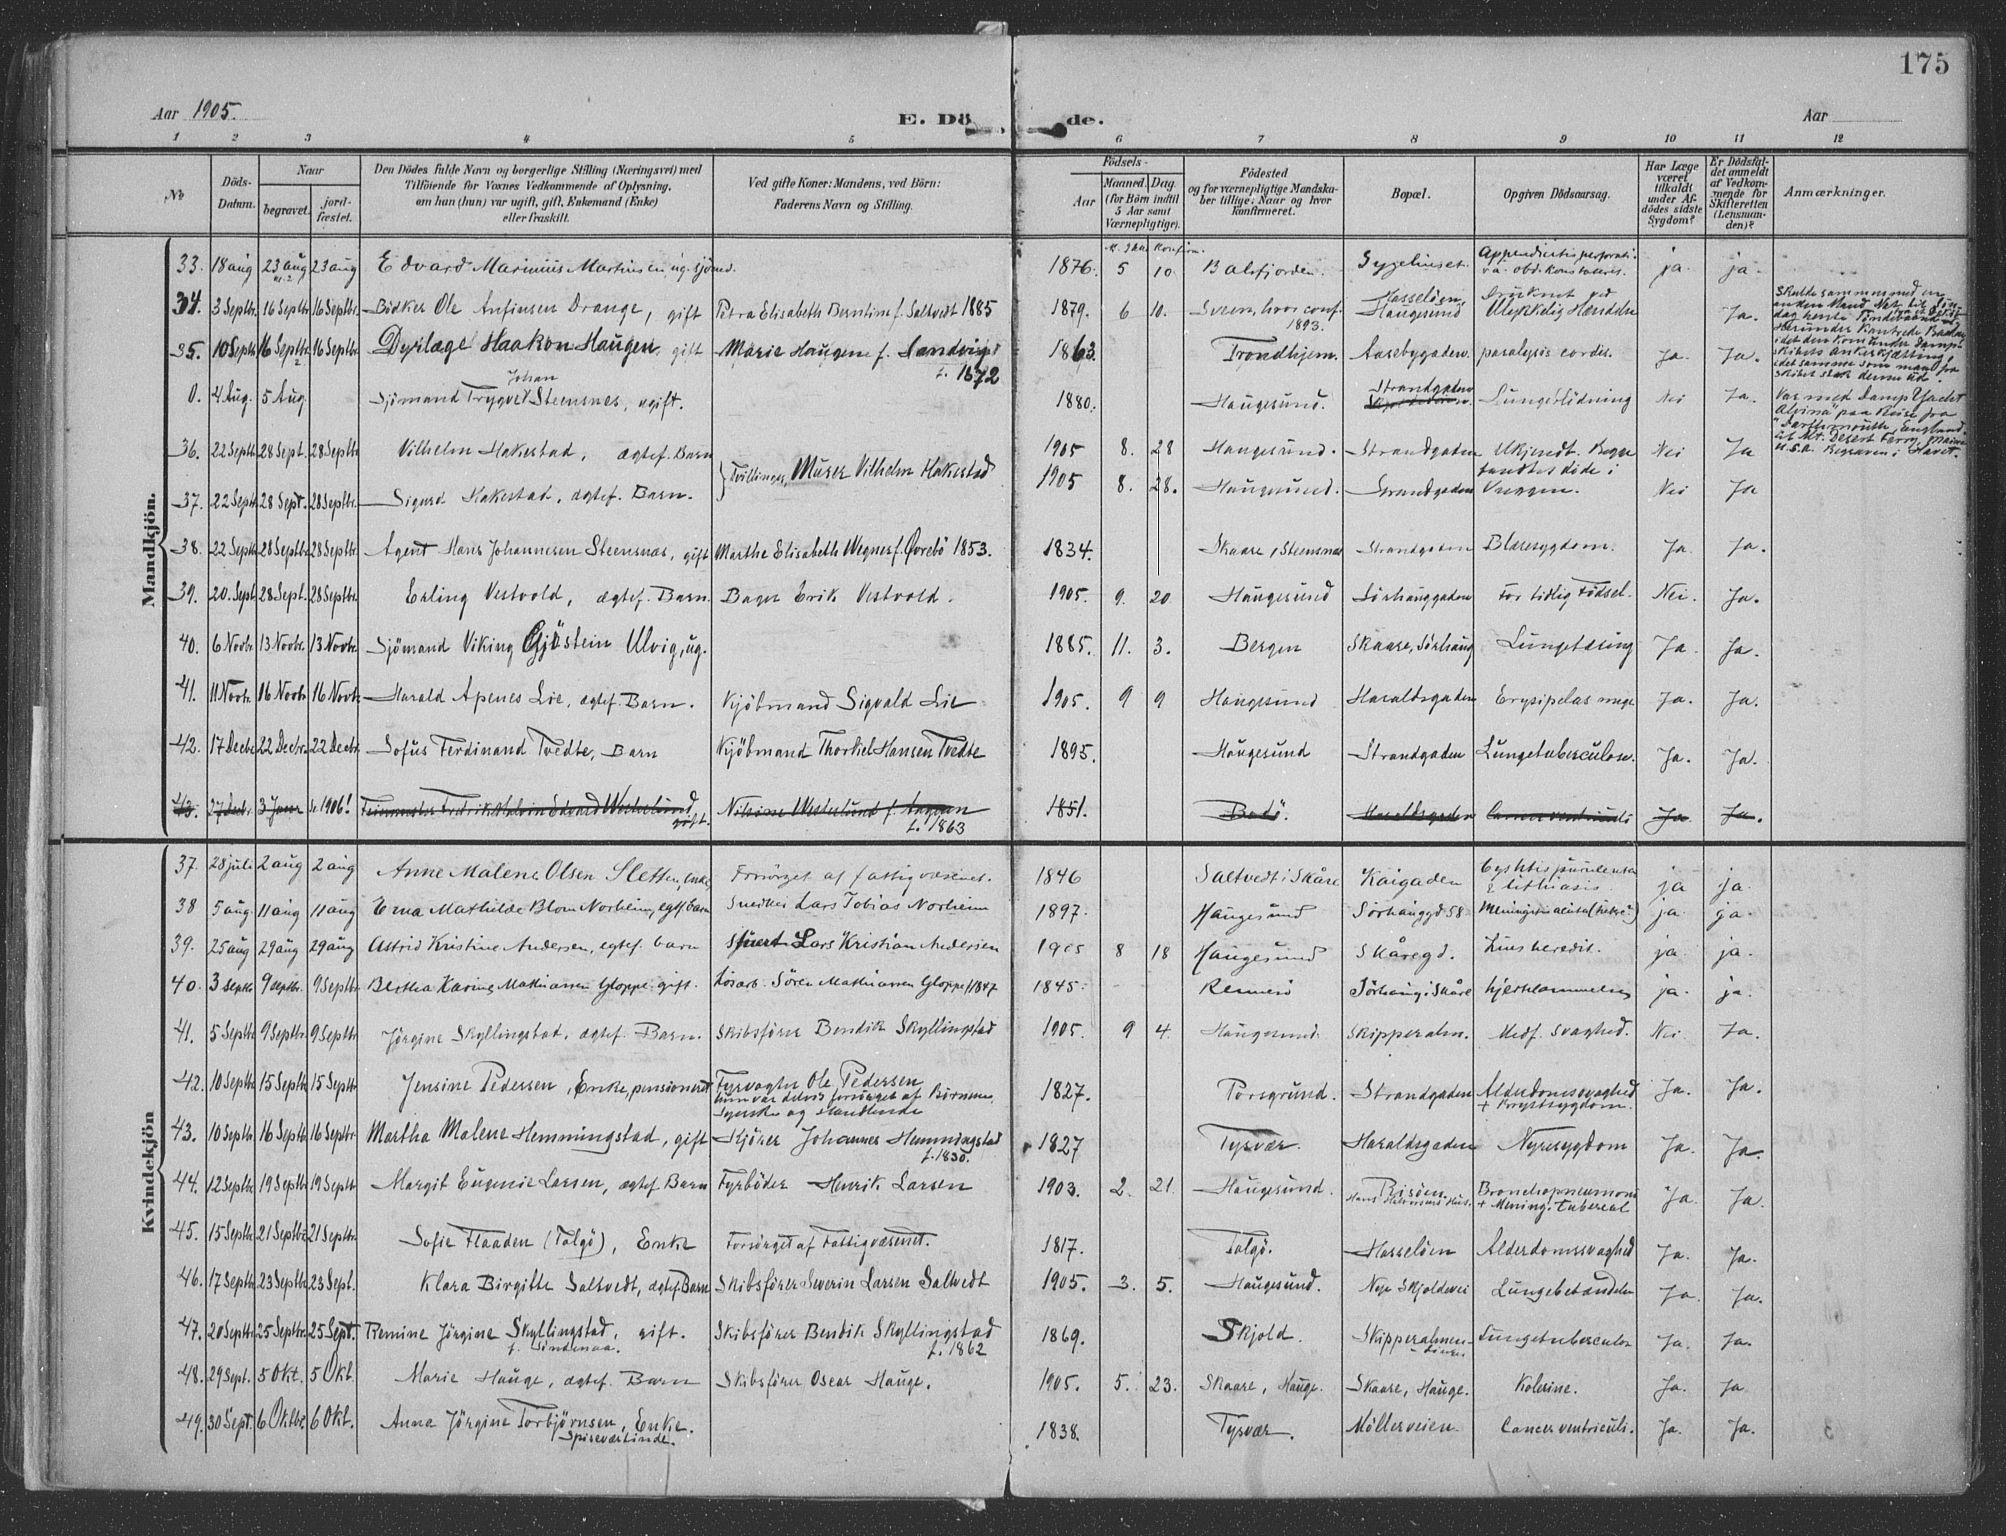 175
Aar 1905.
E. Dö de.
Aar
1 2 3 4 5 6 7 8 9 10 11 12
No
Döds-Datum.
Naar
begravet.
jord-fæstet.
Den Dödes fulde Navn og borgerlige Stilling (Næringsvei) med
Tilföiende for Voxnes Vedkommende af Oplysning,
om han (hun) var ugift, gift, Enkemand (Enke)
eller fraskilt.
Ved gifte Koner: Mandens, ved Börn:
Faderens Navn og Stilling.
Födsels-
Aar
Maaned. Dag.
(for Börn indtil
5 Aar samt
Værnepligtige).
Födested
og for værnepligtige Mandska-
ber tillige: Naar og hvor
konfirmeret.
Bopæl.
Opgiven Dödsaarsag.
Har Læge
været
tilkaldt
under Af-
dödes sidste
Sygdom?
Er Dödsfal-
det anmeldt
af Vedkom-
mende for
Skifteretten
(Lensman-
den)?
Anmærkninger.
Mandkjön.
33. 18 aug 23 aug 23 aug Edvard Marinius Martinsen ug. sjømd. 1876. 5 10. Balsfjorden. Sygehuset. Appendicitis perforati ja. ja.
34. 3 Septbr. 16 Septbr. 16 Septbr. Bödker Ole Anfinsen Drange, gift Petra Elisabeth Berntine f. Saltvedt 1885 1879. 6 10. hvor conf. 1893. Hasselöen, Haugesund Druknet ved Ulykkelig Hændelse Ja.
Skulde sammen med en
anden Mand
35. 10 Septbr. 16 Septbr. 16 Septbr. Dyrlæge Haakon Haugen, gift Marie Haugen f. Sandvig f. 1872 1863. Trondhjem. Aasebygaden. paralysis cordis. Ja. Ja.
0. 4 Aug. 5 Aug. Sjömand Trygve Johan Steensnes, ugift. 1880. Haugesund. Strandgaden Lungeblödning Nei Ja.
Var med Damp Yacht
"Alvina" paa Reise fra
Darthmouth, England
til Mt. Desert Ferry, Maine
U.S.A. Begraven i Havet.
36. 22 Septbr. 28 Sept. 28 Septbr. Vilhelm Hakestad, ægtef. Barn } Tvillinger, Murer Vilhelm Hakestad 1905 8. 28 Haugesund. Strandgaden Ukjendt. Begge fandtes döde i Vuggen. Nei Ja
37. 22 Septbr. 28 Sept. 28 Septbr. Sigurd Hakestad, ægtef. Barn. 1905 8. 28. Haugesund. Strandgaden Nei Ja
38. 22 Septbr. 28 Septbr. 28 Septbr. Agent Hans Johannesen Steensnæs, gift Marthe Elisabeth Wegner f. Øvrebö 1853. 1834. Skaare, Steensnæs Strandgaden Blæresygdom. Ja. Ja.
39. 20. Sept. 28 Sept. 28 Septbr. Erling Vestvold, ægtef. Barn. Bager Erik Vestvold. 1905. 9. 20. Haugesund Sörhauggaden For tidlig Födsel. Nei. Ja.
40. 6 Novbr. 13 Novbr. 13 Novbr. Sjömand Viking Gjöstein Ulvig, ug. 1885. 11. 3. Bergen Skaare, Sörhaug Lungetæring Ja. Ja.
41. 11 Novbr. 16 Novbr. 16 Novbr. Harald Apenes Lie, ægtef. Barn. Kjöbmand Sigvald Lie 1905. 9 9 Haugesund Haraldsgaden Erysipelas Ja. Ja.
42. 17 Decbr. 22 Decbr. 22 Decbr. Sofus Ferdinand Tvedte, Barn Kjöbmand Thorkel Hansen Tvedte 1895. Haugesund Strandgaden Lungetuberculose. Ja. Ja.
43. 27 Decbr. 3 Januar 1906! Fredrik Edvard Westerlund gift. Westerlund f. f. 1863 1851. Bodö. Haraldsgaden Cancer ventriculi Ja. Ja.
Kvindekjön
37. 28 juli 2 aug 2 aug Anne Malene Olsen Sletten, enke Forsörget af fattigvæsenet. 1846 Saltvedt i Skåre Kaigaden Cyshtis purulenta & lithiasis. ja ja.
38 5 aug. 11 aug 11 aug Erna Mathilde Blom Norheim, egtf. barn Snedker Lars Tobias Norheim 1897. Haugesund Sörhauggd 58 Meningitis acuta ja. ja.
39. 25 aug 29 aug 29 aug Astrid Kristine Andersen, egtef. barn Lars Kristian Andersen 1905 8 18 Haugesund Skåregd. Lues heredit. ja. ja.
40. 3 Septbr. 9 Septbr. 9 Septbr. Bertha Karine Mathiassen Gloppe. gift. Lösarb. Sören Mathiassen Gloppe f 1847 1845. Rennesö Sörhaug i Skåre hjertelammelse ja. ja.
41. 5 Septbr. 9 Septbr. 9 Septbr. Jörgine Skyllingstad, ægtef. Barn. Skibsförer Bendik Skyllingstad 1905. 9 4. Haugesund. Skipperalm. Medf. Svaghed. Nei Ja.
42. 10 Septbr. 15 Septbr. 15 Septbr. Jensine Pedersen, Enke, pensioneret Fyrvagter Ole Pedersen. hun var delvis forsörget af Börnene, 1827. Porsgrund. Strandgaden Alderdomssvaghed + Brystsygdom. Ja. Ja.
43. 10 Septbr. 16 Septbr. 16 Septbr. Martha Malene Hemmingstad, gift Johannes Hemmingstad f. 1830. 1827 Tysvær. Haraldsgaden Nyresygdom Ja. Ja.
44. 12 Septbr. 19 Septbr. 19 Septbr. Margit Eugenie Larsen, ægtef. Barn Fyrböder Henrik Larsen 1903. 2. 21. Haugesund. Risöen Hus. Bronchopneumoni + Mening. tubercul Ja. Ja.
45. 15 Septbr. 21 Septbr. 21 Septbr. Sofie Flaaden (Talgö), Enke Forsörget af Fattigvæsenet. 1817. Talgö. Hasselöen Alderdomssvaghed Ja. Ja.
46. 17 Septbr. 23 Septbr. 23 Sept. Klara Birgitte Saltvedt, ægtef. Barn Skibsförer Severin Larsen Saltvedt 1905. 3. 5. Haugesund. Nye Skjoldevei Lungebetændelse Ja. Ja.
47. 20 Septbr. 25 Septbr. 25 Sept. Remine Jörgine Skyllingstad, gift. f. Söndenaa. Skibsförer Bendik Skyllingstad f. 1862 1869. Skjold. Skipperalmen- Lungetuberculose Ja. Ja.
48. 29 Sept. 5 Okt. 5 Okt. Marie Hauge, ægtef. Barn Skibsförer Oscar Hauge. 1905. 5. 23. Skaare, Hauge. Skaare, Hauge. Kolerine. Ja. Ja
49. 30 Sept. 6 Oktbr. 6 Okt. Anna Jörgine Torbjörnsen, Enke. Spiseværtinde. 1838. Tysvær. Mölleveien. Cancer ventriculi. Ja. Ja.